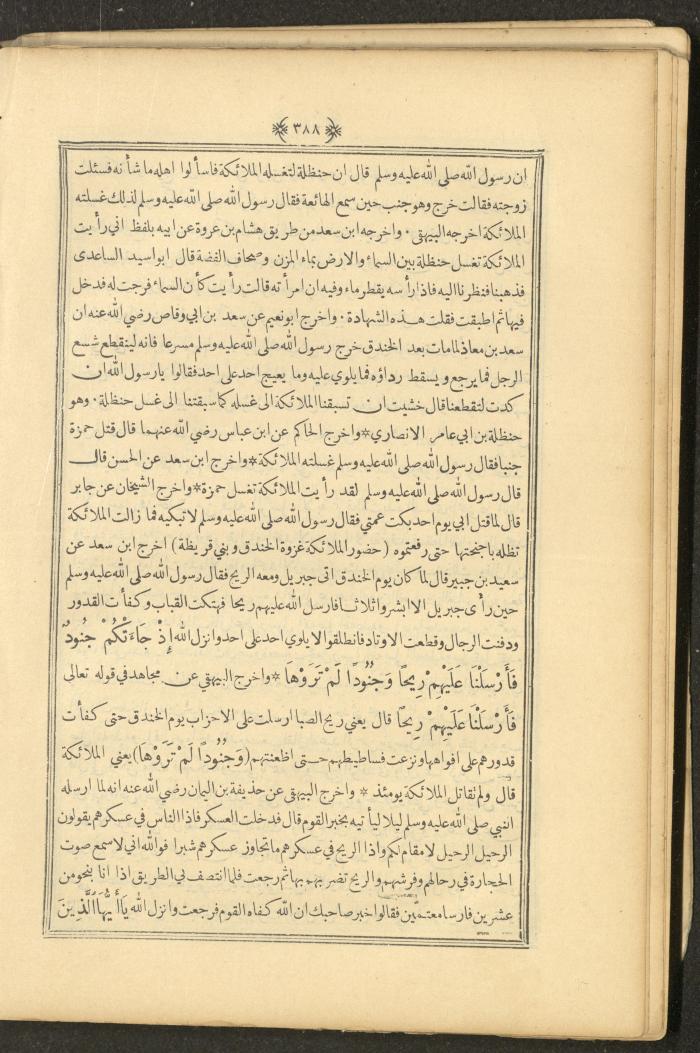 ٣٨٨
ان رسول الله صلى الله عليه وسلم قال ان حنظلة لتغسله الملائكة فاسألوا اهله ما شأنه فسئلت
زوجته فقالت خرج وهو جنب حين سمع الهائعة فقال رسول الله صلى الله عليه وسلم لذلك غسلته
الملائكة اخرجه البيهقي ٠ واخرجه ابن سعد من طريق هشام بن عروة عن ابيه بلفظ اني رأيت
الملائكة تغسل حنظلة بين السماء والارض بماء المزن وصحاف الفضة قال ابو اسيد الساعدى
فذهبنا فنظرنا اليه فاذا رأسه يقطر ماء وفيه ان امرأته قالت رأيت كأن السماء فرجت له فدخل
فيها ثم اطبقت فقلت هذه الشهادة ٠ واخرج ابو نعيم عن سعد بن ابي وقاص رضي الله عنه ان
سعد بن معاذ لما مات بعد الخندق خرج رسول الله صلى الله عليه وسلم مسرعا فانه لينقطع شسع
الرجل فما يرجع ويسقط رداؤه فما يلوي عليه وما يعيج احد على احد فقالوا يا رسول الله ان
كدت لتقطعنا قال خشيت ان تسبقنا الملائكة الى غسله كما سبقتنا الى غسل حنظلة ٠ وهو
حنظلة بن ابي عامر الانصاري * واخرج الحاكم عن ابن عباس رضي الله عنهما قال قتل حمزة
جنبا فقال رسول الله صلى الله عليه وسلم غسلته الملائكة * واخرج ابن سعد عن الحسن قال
قال رسول الله صلى الله عليه وسلم لقد رأيت الملائكة تغسل حمزة * واخرج الشيخان عن جابر
قال لما قتل ابي يوم احد بكت عمتي فقال رسول الله صلى الله عليه وسلم لا تبكيه فما زالت الملائكة
تظله باجنحتها حتى رفعتموه (حضور الملائكة غزوة الخندق وبني قريظة) اخرج ابن سعد عن
سعيد بن جبير قال لما كان يوم الخندق اتى جبريل ومعه الريح فقال رسول الله صلى الله عليه وسلم
حين رأى جبريل الا ابشروا ثلاثا فارسل الله عليهم ريحا فهتكت القباب وكفأت القدور
ودفنت الرجال وقطعت الاوتاد فانطلقوا لا يلوي احد على احد وانزل الله إِذْ جَاءَتْكُمْ جُنُودٌ
فَأَرْسَلْنَا عَلَيْهِمْ رِيحًا وَجُنُودًا لَمْ تَرَوْهَا * واخرج البيهقي عن مجاهد في قوله تعالى
فَأَرْسَلْنَا عَلَيْهِمْ رِيحًا قال يعني ريح الصبا ارسلت على الاحزاب يوم الخندق حتى كفأت
قدورهم على افواهها ونزعت فساطيطهم حتى اظعنتهم (وَجُنُودًا لَمْ تَرَوْهَا) يعني الملائكة
قال ولم تقاتل الملائكة يومئذ * واخرج البيهقي عن حذيفة بن اليمان رضي الله عنه انه لما ارسله
النبي صلى الله عليه وسلم ليلا ليأتيه بخبر القوم قال فدخلت العسكر فاذا الناس في عسكرهم يقولون
الرحيل الرحيل لا مقام لكم واذا الريح في عسكرهم ما تجاوز عسكرهم شبرا فوالله اني لاسمع صوت
الحجارة في رحالهم وفرشهم والريح تضربهم بها ثم رجعت فلما انتصف بي الطريق اذا انا بنحو من
عشرين فارسا معتمين فقالوا اخبر صاحبك ان الله كفاه القوم فرجعت وانزل الله يَا أَيُّهَا الَّذِينَ